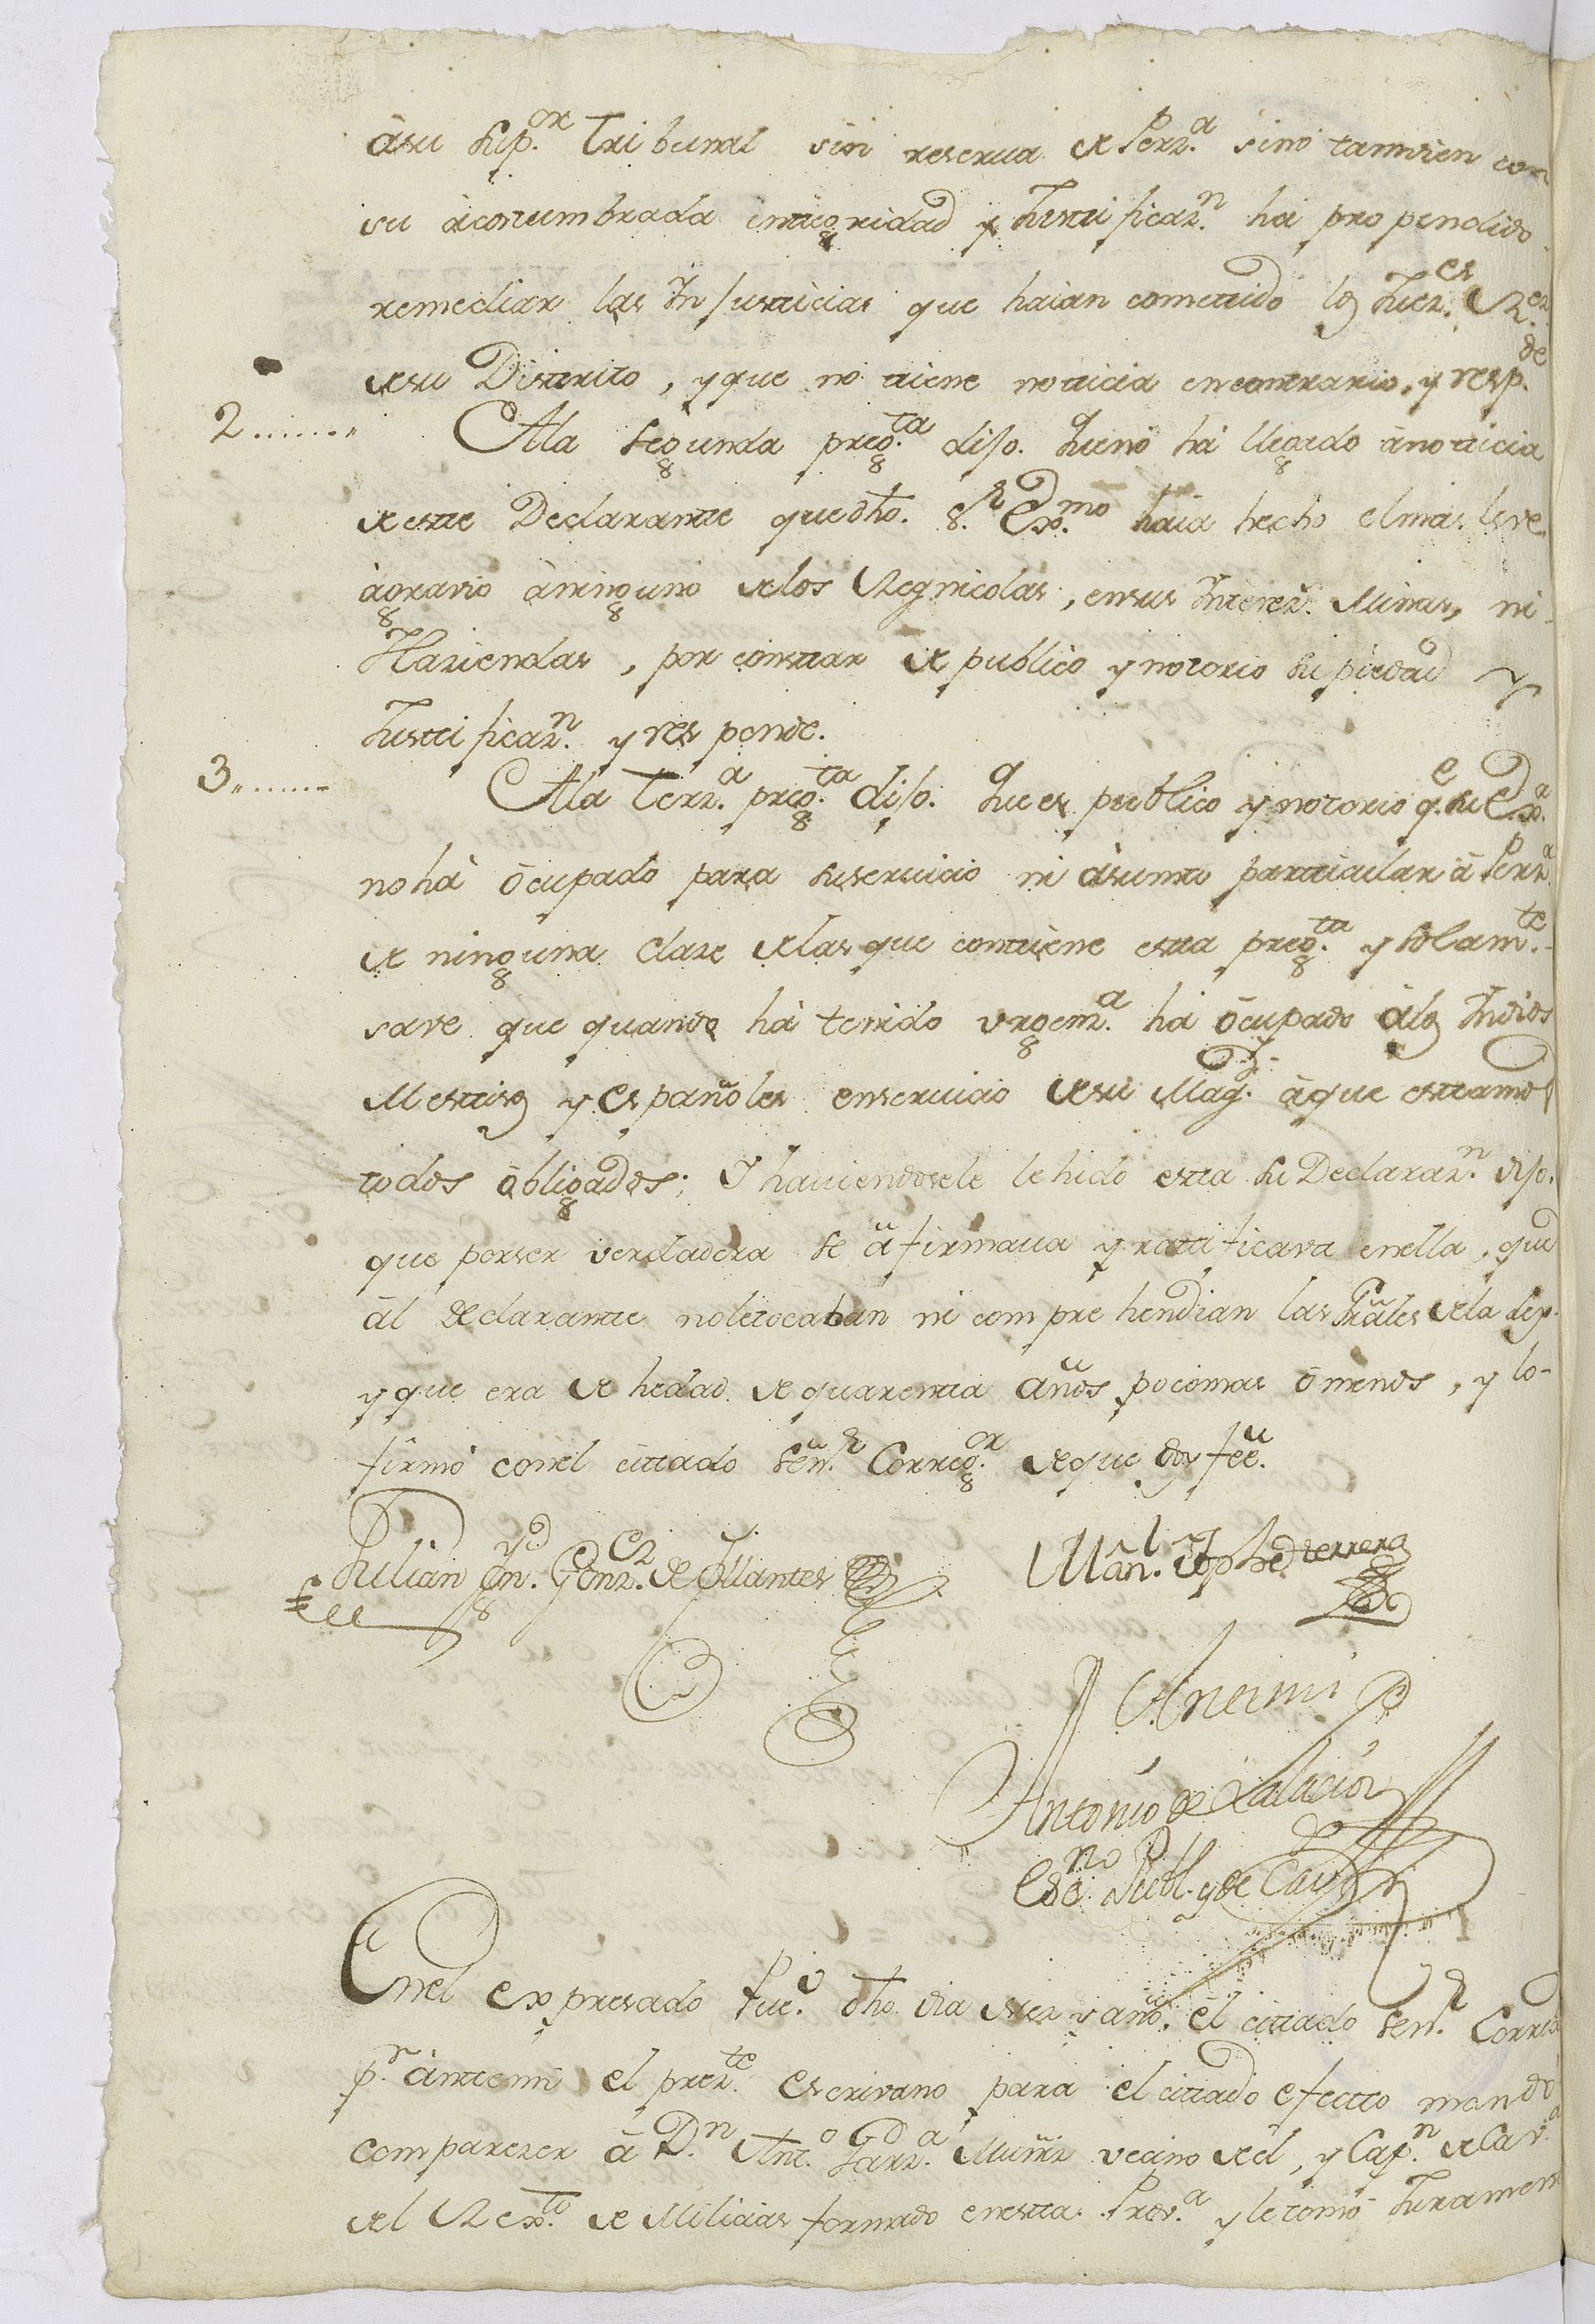 âsu Sup.or Tribunal sin reserva de Perz.a sino tamvien con
su àcostumbrada integridad y Justificaz.n há propendido
remediar las Injusticias que haian cometido los Juez.es R.es
de su Distrito, y que no tiene noticia encontrario, y resp.de
2....... A la segunda preg.ta dijo. Que no há llegado ànoticia
de este Declarante que dho. S.r Ex.mo haia hecho el mas leve
àgravio àninguno de los Regnicolas, ensus Interez.s Minas, ni
Haziendas, por constar de publico y notorio su piedad y
Justificaz.n y responde.
3....... A la Terz.a preg.ta dijo. Que es publico y notorio q.e su Ex.a
no há ôcupado para suservicio ni âsunto particular â Perz.a
de ninguna clase de las que contiene esta preg.ta y solam.te
save que quando há tenido urgenz.a há ôcupado âlos Indios
Mestisos y españoles enservicio de su Mag.d àque estamos
todos ôbligados; Y haviendosele lehido esta su Declaraz.n dijo.
que porser verdadera se âfirmava y ratificava enella, que
âl declarante noletocaban ni comprehendian las Grâles de la ley.
y que era de hedad de quarenta años pocomas ômenos, y lo
firmó conel cittado Señ.r Correg.or deque doy feé.
Julian Ign.o Gonz.z de Collantes Man.l Joph de Herrera
Antemi
Antonio de Palacios
Esc.no Publ. y de Cav.
Enel expresado Pue.o dho dia mes y año. el cittado Señ.r Correg.
p.r ântemi el prez.te escrivano para el cittado efecto mandó
comparezer â D.n Ant.o Garz.a Muñiz vecino de el, y Cap.n de Cav.a
del Rex.to de Milicias formado enesta Prov.a y le tomó Jurament